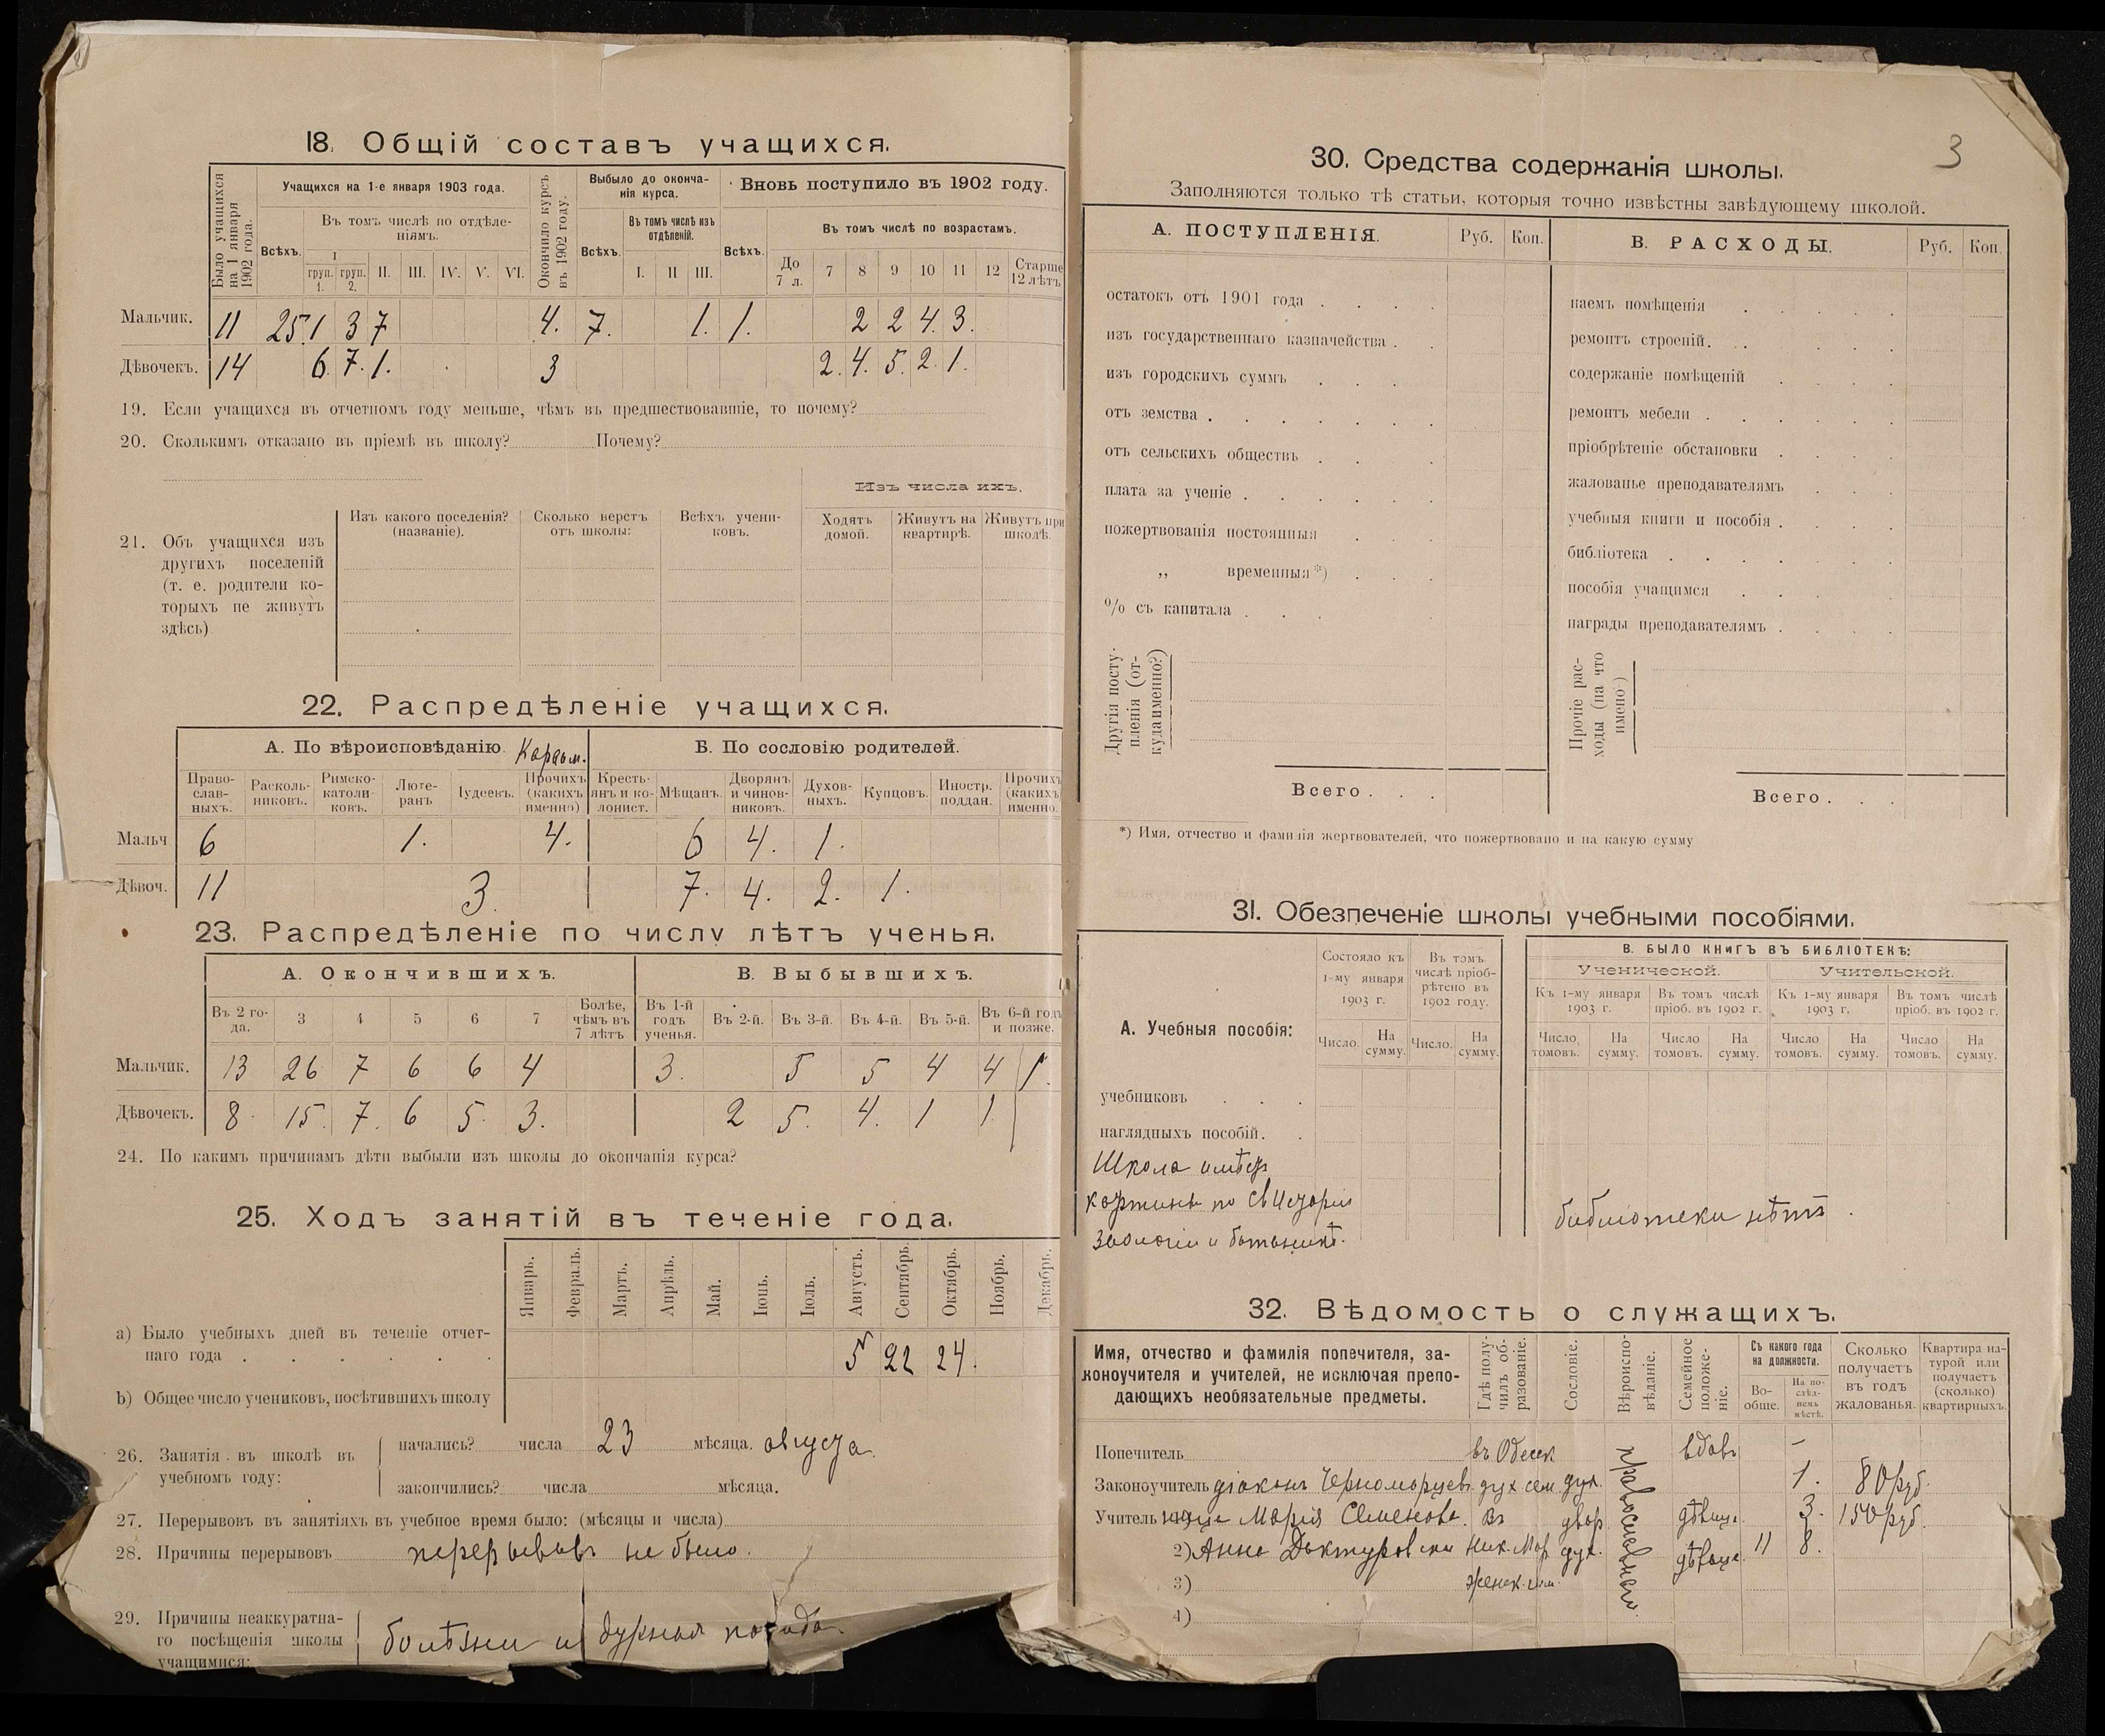 18. Общій составъ учащихся.
Было учащихся на 1 января 1902 года.
Учащихся на 1-е января 1903 года.
Всѣхъ.
Въ томъ числѣ по отдѣле-
ніямъ.
I
груп. 1. груп. 2. II. III. IV. V. VI.
Окончило курсъ въ 1902 году.
Выбыло до оконча-
нія курса.
Всѣхъ.
Въ томъ числѣ изъ
отдѣленій.
I. II III.
Вновь поступило въ 1902 году.
Всѣхъ.
Въ томъ числѣ по возрастамъ.
До 7 л. 7 8 9 10 11 12 Старше 12 лѣтъ
Мальчик. 11 25 1 3 7 4. 7. 1. 1. 2 2 4. 3.
Дѣвочекъ. 14 6. 7. 1. 3 2. 4. 5. 2. 1.
19. Если учащихся въ отчетномъ году меньше, чѣмъ въ предшествовавшіе, то почему?
20. Сколькимъ отказано въ пріемѣ въ школу? Почему?
21. Объ учащихся изъ
другихъ поселеній
(т. е. родители ко-
торыхъ не живутъ
здѣсь)
Изъ какого поселенія?
(названіе).
Сколько верстъ
отъ школы:
Всѣхъ учени-
ковъ.
Изъ числа ихъ.
Ходятъ
домой.
Живутъ на
квартирѣ.
Живутъ при
школѣ.
22. Распредѣленіе учащихся.
А. По вѣроисповѣданію Караим.
Б. По сословію родителей.
Право-
слав-
ныхъ.
Расколь-
никовъ.
Римско-
католи-
ковъ.
Люте-
ранъ
Іудеекъ.
Прочихъ
(какихъ
именно)
Кресть-
янъ и ко-
лонист.
Мѣщанъ.
Дворянъ
и чинов-
никовъ.
Духов-
ныхъ.
Купцовъ.
Иностр.
поддан.
Прочихъ
(какихъ
именно.
Мальч 6 1. 4. 6 4. 1.
Дѣвоч. 11 3. 7. 4. 2. 1.
23. Распредѣленіе по числу лѣтъ ученья.
А. Окончившихъ.
В. Выбывшихъ.
Въ 2 го-
да.
3 4 5 6 7
Болѣе,
чѣмъ въ
7 лѣтъ
Въ 1-й
годъ
ученья.
Въ 2-й. Въ 3-й. Въ 4-й. Въ 5-й.
Въ 6-й годъ
и позже.
Мальчик. 13 26 7 6 6 4 3. 5 5 4 4 1.
Дѣвочекъ. 8 15. 7. 6 5. 3. 2 5. 4. 1 1.
24. По какимъ причинамъ дѣти выбыли изъ школы до окончанія курса?
25. Ходъ занятій въ теченіе года.
Январь. Февраль. Мартъ. Апрѣль. Май. Іюнь. Іюль. Августъ. Сентябрь. Октябрь. Ноябрь. Декабрь.
а) Было учебныхъ дней въ теченіе отчет-
наго года . . . . . . 5 22 24.
b) Общее число учениковъ, посѣтившихъ школу
26. Занятія въ школѣ въ
учебномъ году:
начались? числа 23 мѣсяца. августа.
закончились? числа мѣсяца.
27. Перерывовъ въ занятіяхъ въ учебное время было: (мѣсяцы и числа)
28. Причины перерывовъ перерывовъ не было.
29. Причины неаккуратна-
го посѣщенія школы
учащимися:
болѣзни и дурная погода.
3
30. Средства содержанія школы.
Заполняются только тѣ статьи, которыя точно извѣстны завѣдующему школой.
А. ПОСТУПЛЕНІЯ. Руб. Коп.
остатокъ отъ 1901 года . . . .
изъ государственнаго казначейства . .
изъ городскихъ суммъ . . .
отъ земства . . . . . . .
отъ сельскихъ обществъ . . .
плата за ученіе . . . . . .
пожертвованія постоянныя . . .
„ временныя *) . . .
% съ капитала . . . .
Другія посту-
пленія (от-
куда именно?)
Всего . . .
В. РАСХОДЫ. Руб. Коп.
наемъ помѣщенія . . . . .
ремонтъ строеній. . . . . .
содержаніе помѣщеній . . . .
ремонтъ мебели . . . . . .
пріобрѣтеніе обстановки . . . .
жалованье преподавателямъ . . .
учебныя книги и пособія . . . .
библіотека . . . . . .
пособія учащимся . . . .
награды преподавателямъ . . . .
Прочіе рас-
ходы (на что
имено-)
Всего . . .
*) Имя, отчество и фамилія жертвователей, что пожертвовано и на какую сумму
31. Обезпеченіе школы учебными пособіями.
А. Учебныя пособія:
Состояло къ
1-му января
1903 г.
Въ томъ
числѣ пріоб-
рѣтено въ
1902 году.
Число. На сумму. Число. На сумму.
учебниковъ . . .
наглядныхъ пособій. .
Школа имѣетъ
картины по св Исторіи
зоологіи и ботаникѣ.
В. БЫЛО КНИГЪ ВЪ БИБЛІОТЕКѢ:
Ученической. Учительской.
Къ 1-му января
1903 г.
Въ томъ числѣ
пріоб. въ 1902 г.
Къ 1-му января
1903 г.
Въ томъ числѣ
пріоб. въ 1902 г.
Число томовъ. На сумму. Число томовъ. На сумму. Число томовъ. На сумму. Число томовъ. На сумму.
библіотеки нѣтъ.
32. Вѣдомость о служащихъ.
Имя, отчество и фамилія попечителя, за-
коноучителя и учителей, не исключая препо-
дающихъ необязательные предметы.
Гдѣ полу-
чилъ об-
разованіе.
Сословіе.
Вѣроиспо-
вѣданіе.
Семейное
положе-
ніе.
Съ какого года
на должности.
Во-
обще.
На по-
слѣд-
немъ
мѣстѣ.
Сколько
получаетъ
въ годъ
жалованья.
Квартира на-
турой или
получаетъ
(сколько)
квартирныхъ.
Попечитель въ Одеск вдовъ –
Законоучитель діаконъ Черноморцевъ дух сем дух. 1. 80 руб.
Учитель Марія Семенова. двор. дѣвица 3. 150 руб.
2) Анна Ник. Мар дух. дѣвица 11 8.
православнаго
3) женск.
4)